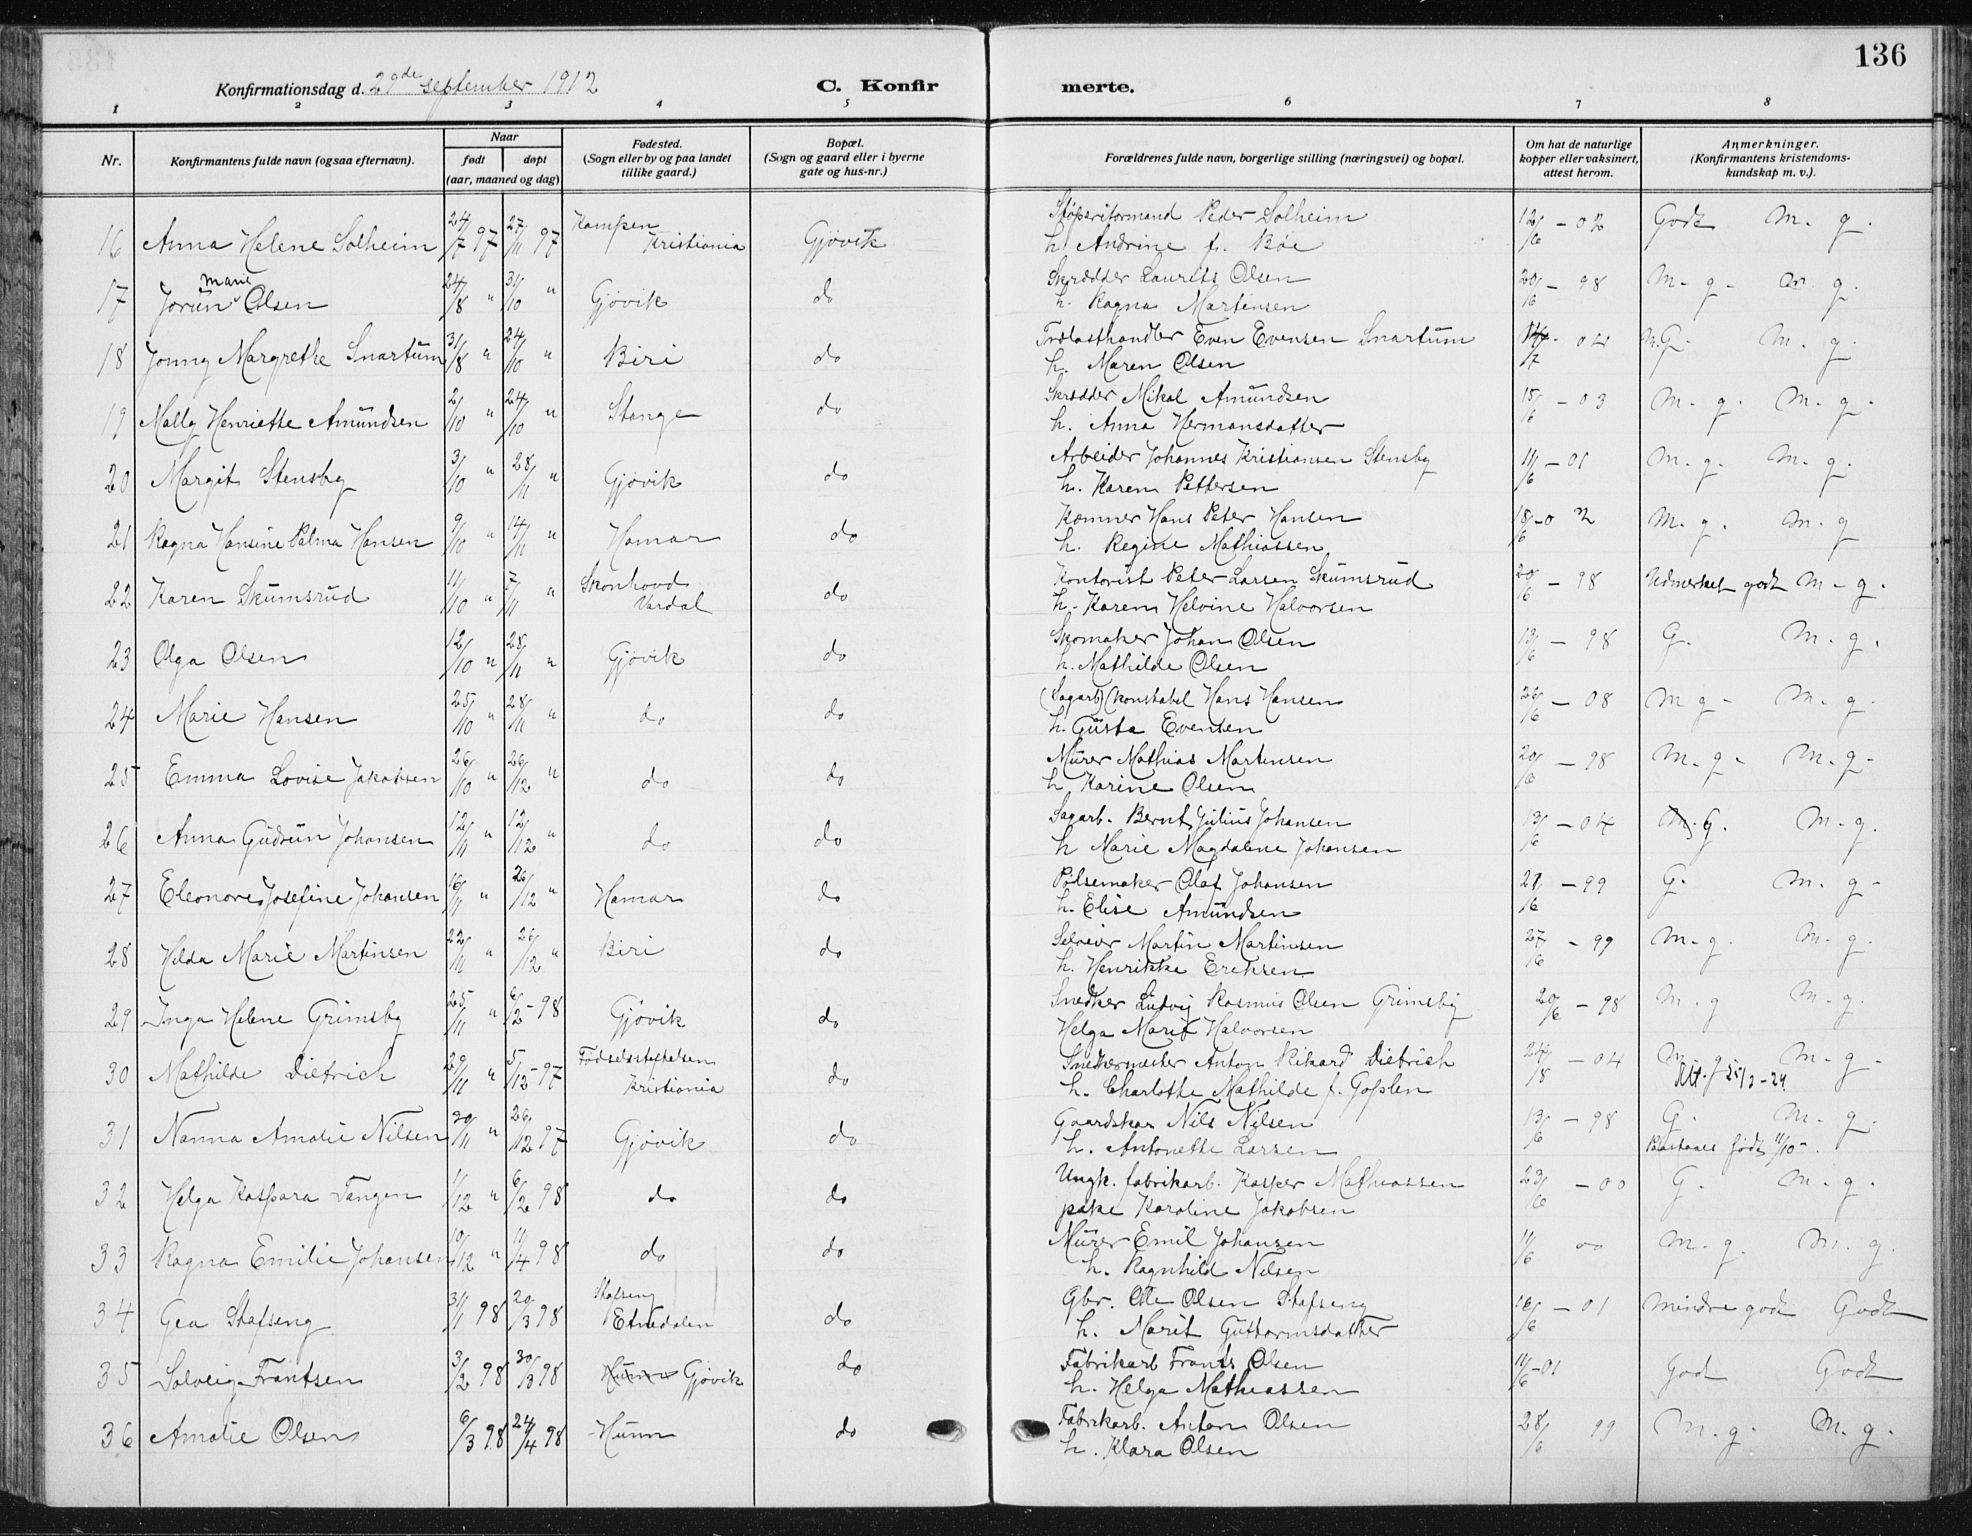 136
Konfirmationsdag d. 29de september 1912 C. Konfirmerte.
1 2 3 4 5 6 7 8
Nr. | Konfirmantens fulde navn (ogsaa efternavn). | Naar født døpt (aar, maaned og dag) | Fødested. (Sogn eller by og paa landet tillike gaard.) | Bopæl. (Sogn og gaard eller i byerne gate og hus-nr.) | Forældrenes fulde navn, borgerlige stilling (næringsvei) og bopæl. | Om hat de naturlige kopper eller vaksinert, attest herom. | Anmerkninger. (Konfirmantens kristendomskundskap m. v.).
16 Anna Helene Solheim 24/7 97 27/11 97 Kampen Kristiania Gjøvik Støperiformand Peder Solheim h. Andrine f. Bøe 12/6 - 02 Godt M. g.
17 Jorun Marie Olsen 24/8 " 31/10 " Gjøvik do Skrædder Laurits Olsen h. Ragna Martinsen 20/6 - 98 M. g. M. g.
18 Jonny Margrethe Snartum 31/8 " 24/10 " Biri do Trælasthandler Even Evensen Snartum h. Maren Olsen 04 M. G. M. g.
19 Mally Henriette Amundsen 2/10 " 24/10 " Stange do Skrædder Mikal Amundsen h. Anna Hermansdatter 15/6 - 03 M. g. M. g.
20 Margit Stensby 3/10 " 28/11 " Gjøvik do Arbeider Johannes Kristiansen Stensby h. Karen Pettersen 11/6 - 01 M. g. M. g.
21 Ragna Hansine Palma Hansen 9/10 " 14/11 " Hamar do Kæmner Hans Peter Hansen h. Regine Mathiassen 18/6 - 02 M. g. M. g
22 Karen Skumsrud 11/10 " 7/11 " Skonhovd Vardal do Kontorist Peter Larsen Skumsrud h. Karen Helvine Halvorsen 20/6 - 98 Udmerket godt M. g.
23 Olga Olsen 12/10 " 28/11 " Gjøvik do Skomaker Johan Olsen h. Mathilde Olsen 13/6 - 98 G. M. g.
24 Marie Hansen 25/10 " 28/11 " do do (Sagarb) (konstabel Hans Hansen h. Gusta Evensen 26/6 - 08 M g. M. g.
25 Emma Lovise Jakobsen 26/10 " 26/12 " do do Murer Mathias Martinsen h. Karine Olsen 20/6 - 98 M. g. M. g.
26 Anna Gudrun Johansen 12/11 " 12/12 " do do Sagarb. Bernt Julius Johansen h Marie Magdalene Johansen 13/6 - 04 M. G. M. g.
27 Eleonore Josefine Johansen 16/11 " 26/12 " Hamar do Pølsemaker Olaf Johansen h. Elise Amundsen 21/6 - 99 G. M. g.
28 Hilda Marie Martinsen 22/11 " 26/12 " Biri do Selveier Martin Martinsen h. Henrikke Eriksen 27/6 - 99 M. g. M. g.
29 Inga Helene Grimsby 25/11 " 6/2 - 98 Gjøvik do Snedker Ludvig Rasmus Olsen Grimsby Helga Marie Halvorsen 20/6 - 98 M. g M. g
30 Mathilde Dietrich 29/11 " 5/12 - 97 Fødselsstiftelsen Kristiania do Snedkermester Anton Rikard Dietrich h. Charlotte Mathilde f. Goplen 24/8 - 04 M. g. M. g.
31 Nanna Amalie Nilsen 30/11 " 26/12 97 Gjøvik do Gaardskar Nils Nilsen h. Antonette Larsen 13/6 - 98 G. M. g. Paastaaes født 11/10
32 Helga Kaspara Tangen 1/12 " 6/2 98 do do Ungk. fabrikarb. Kasper Mathiassen pike Karoline Jakobsen 23/6 - 00 G. M. g.
33 Ragna Emilie Johansen 10/12 " 11/4 98 do do Murer Emil Johansen h. Ragnhild Nilsen 11/6 00 M. g. M. g.
34 Gea Stafseng 31/1 98 20/3 98 Stafseng Etnedalen do Gbr. Ole Olsen Stafseng h. Marit Guttormsdatter 16/6 - 01 Mindre godt Godt
35 Solveig Frantsen 3/2 98 30/3 98 Hunn Gjøvik do Fabrikarb Frants Olsen h. Helga Mathiassen 11/6 - 01 God Godt
36 Amalie Olsen 6/3 98 24/4 98 Hunn do Fabrikarb. Anton Olsen h. Klara Olsen 28/6 99 M. g. M. g.